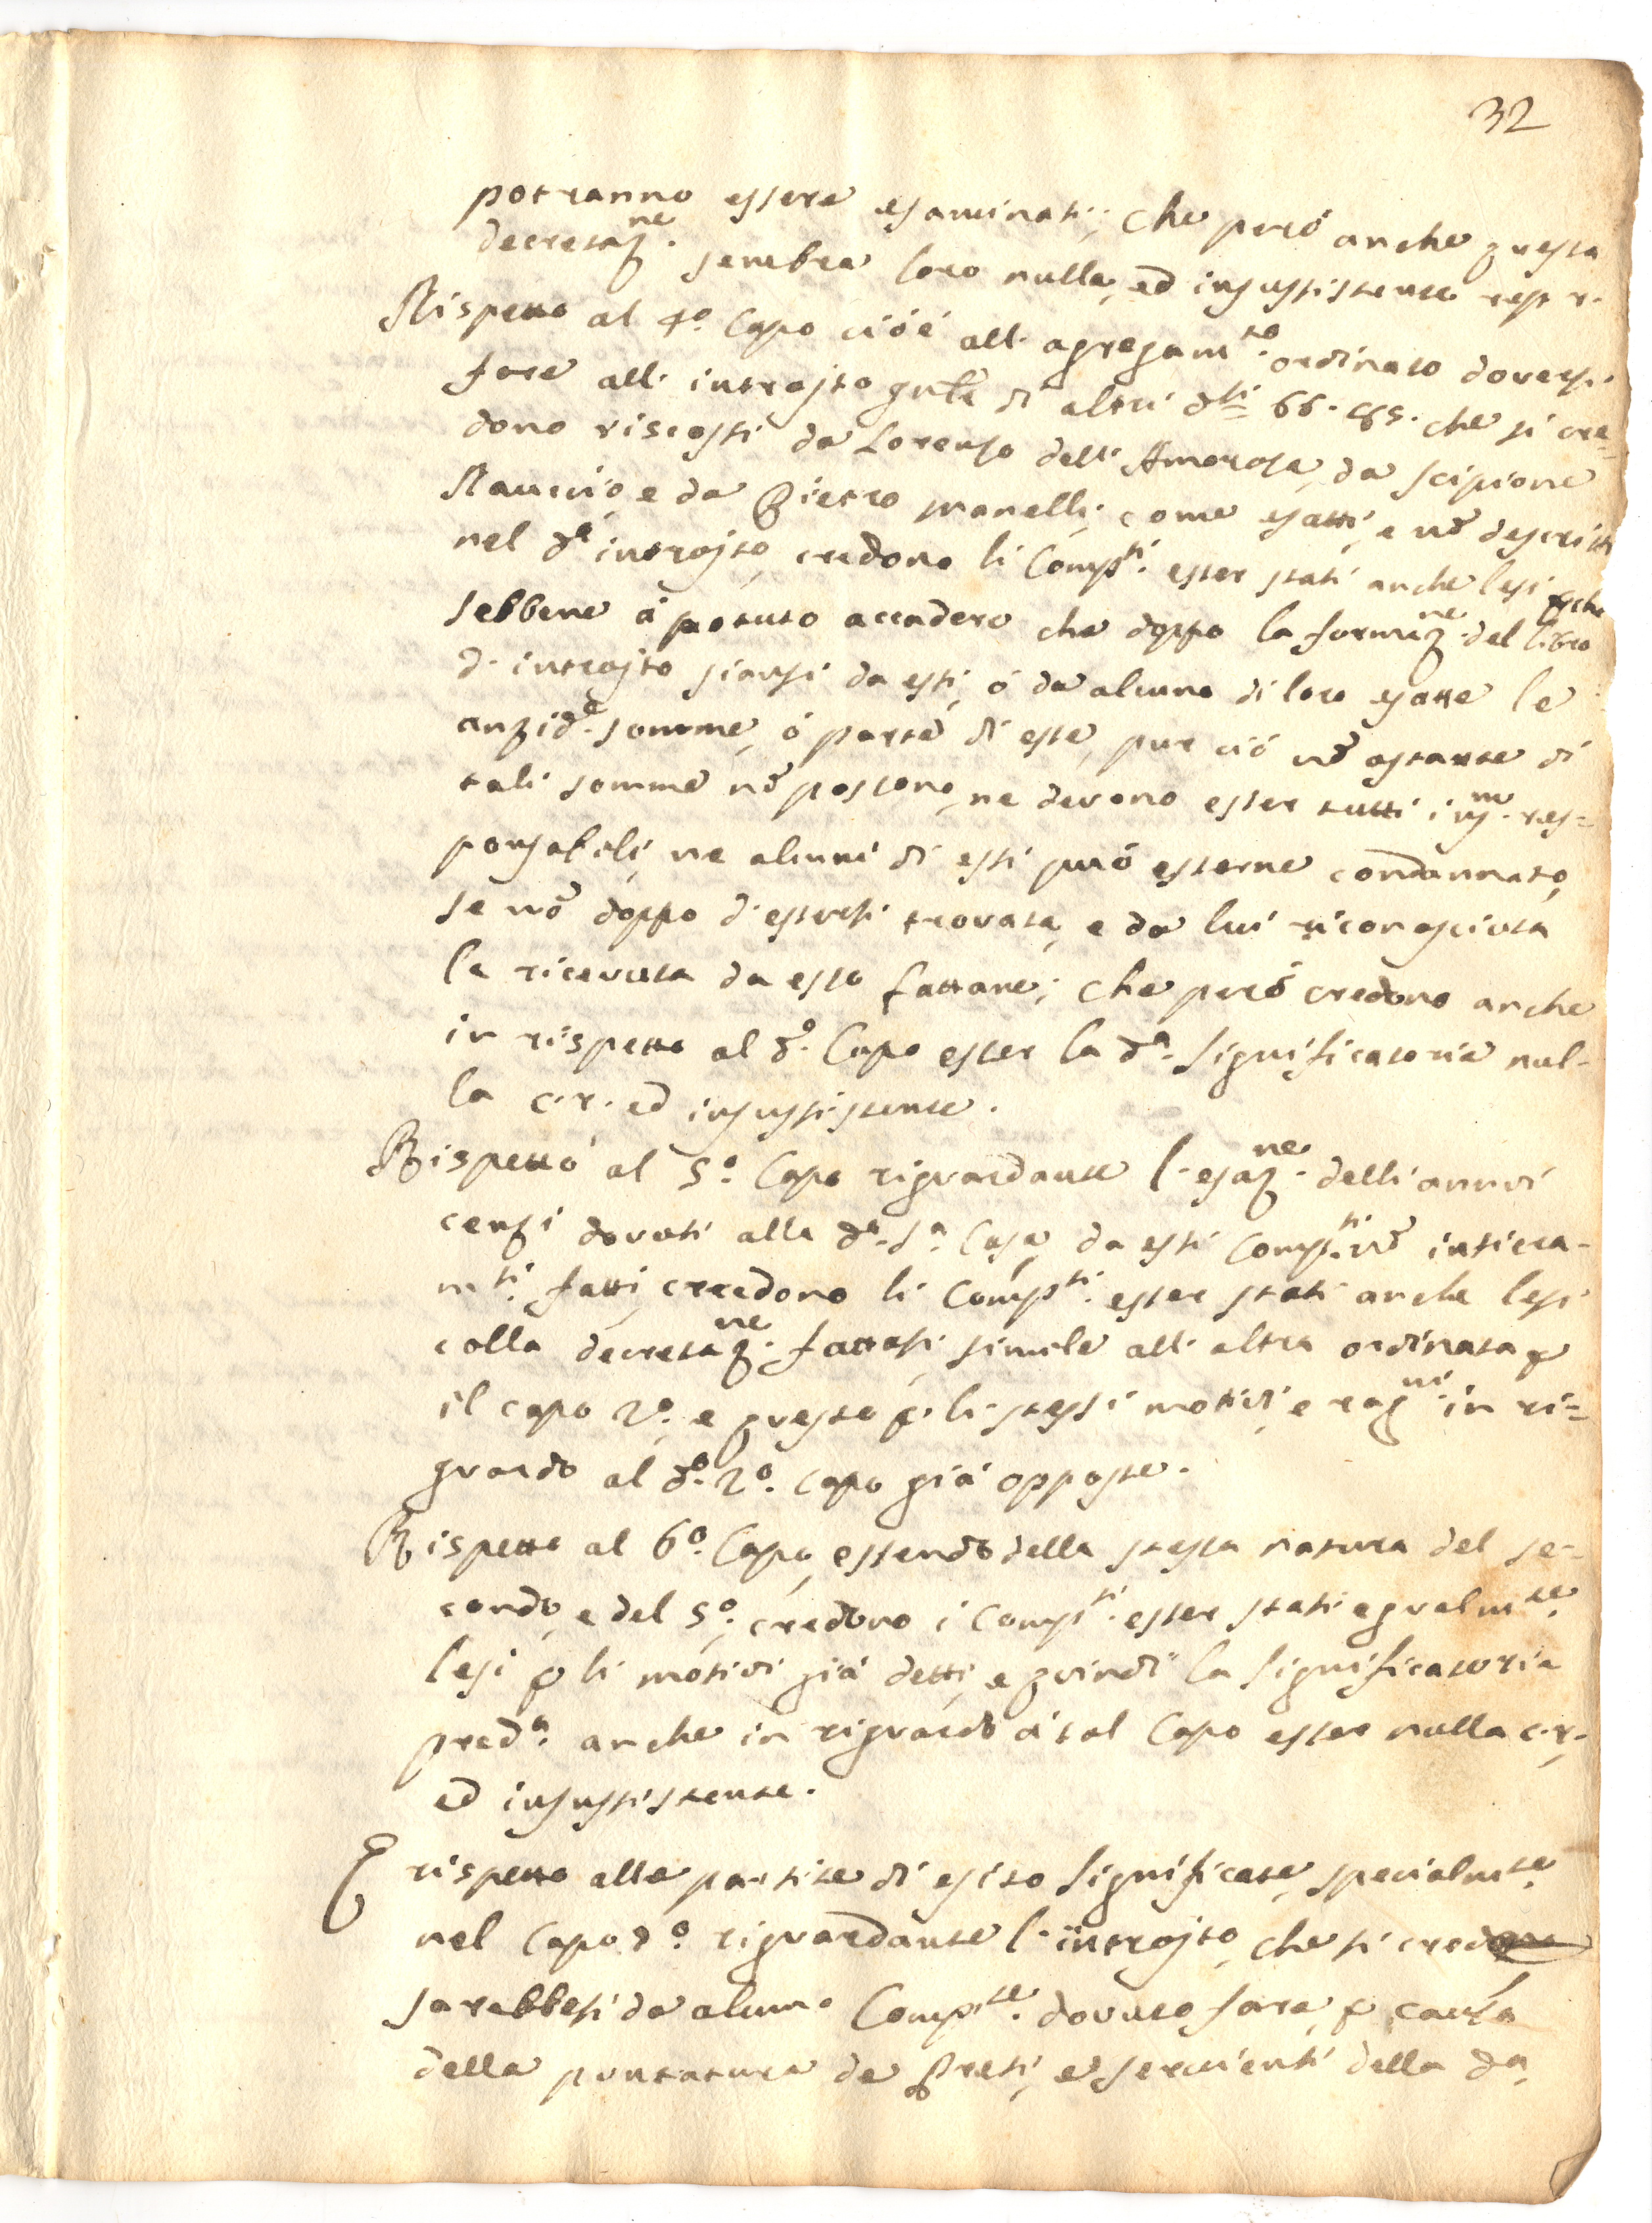 32
potranno essere esaminati; che però anche questa
decretaz.ne sembra loro nulla, ed insussistente resp r.
Rispetto al 4.o Capo cióè all' agregam.to ordinato doversi
fare all' introjto di altri d.ti 66. 85. che si cre=
dono riscossi da Lorenso dell' Amorosa, da Scipione
e da Pietro Manelli; come esatti, e nō descritti
nel d.o introjto, credono li Comp.ti esser stati anche lesi, pche
sebbene à potuto accadere che doppo la formaz.ne del libro
d' introjto siansi da essi, ó da alcuno di loro esatte le
anzid.e somme, ó parte di esse, pur ció nō ostante di
tali somme nō possono, ne devono esser tutti ins.me res=
ponsabili, ne alcuni di essi puó esserne condannato,
se nō doppo d' essersi trovata, e da lui riconosciuta
la ricevuta da esso fattane; che però credono anche
in rispetto al d.o Capo esser la d.a significatoria nul-
la c. r. ed insussistente.
Rispetto al 5.o Capo riguardante l' esaz.ne delli annui
cenzi dovuti alla d.a S.a Casa, da essi Comp.ti nō intiera-
m.ti fatti, creedono li Comp.ti esser stati anche lesi
colla decretaz.ne fattasi, simile all' altra ordinata p
il capo 2.o, e questo p. li stessi motivi, e rag.ni in ri=
guardo al d.o 2.o capo giá opposte.
Rispetto al 6.o Capo, essendo della stessa natura del se-
condo, e del 5.o, credono i Comp.ti esser stati egualm.te
lesi p li motivi giá detti, e quindi la significatoria
pred.a anche in riguardo á tal Capo esser nulla c. r.
ed insussistente.
E rispetto alle partite di esito significate, specialm.te
nel Capo d.o riguardante l' introjto, che si cred
sarebbesi da alcuno Comp.te dovuto fare, p causa
della puntatura de Preti, e servienti della d.a,